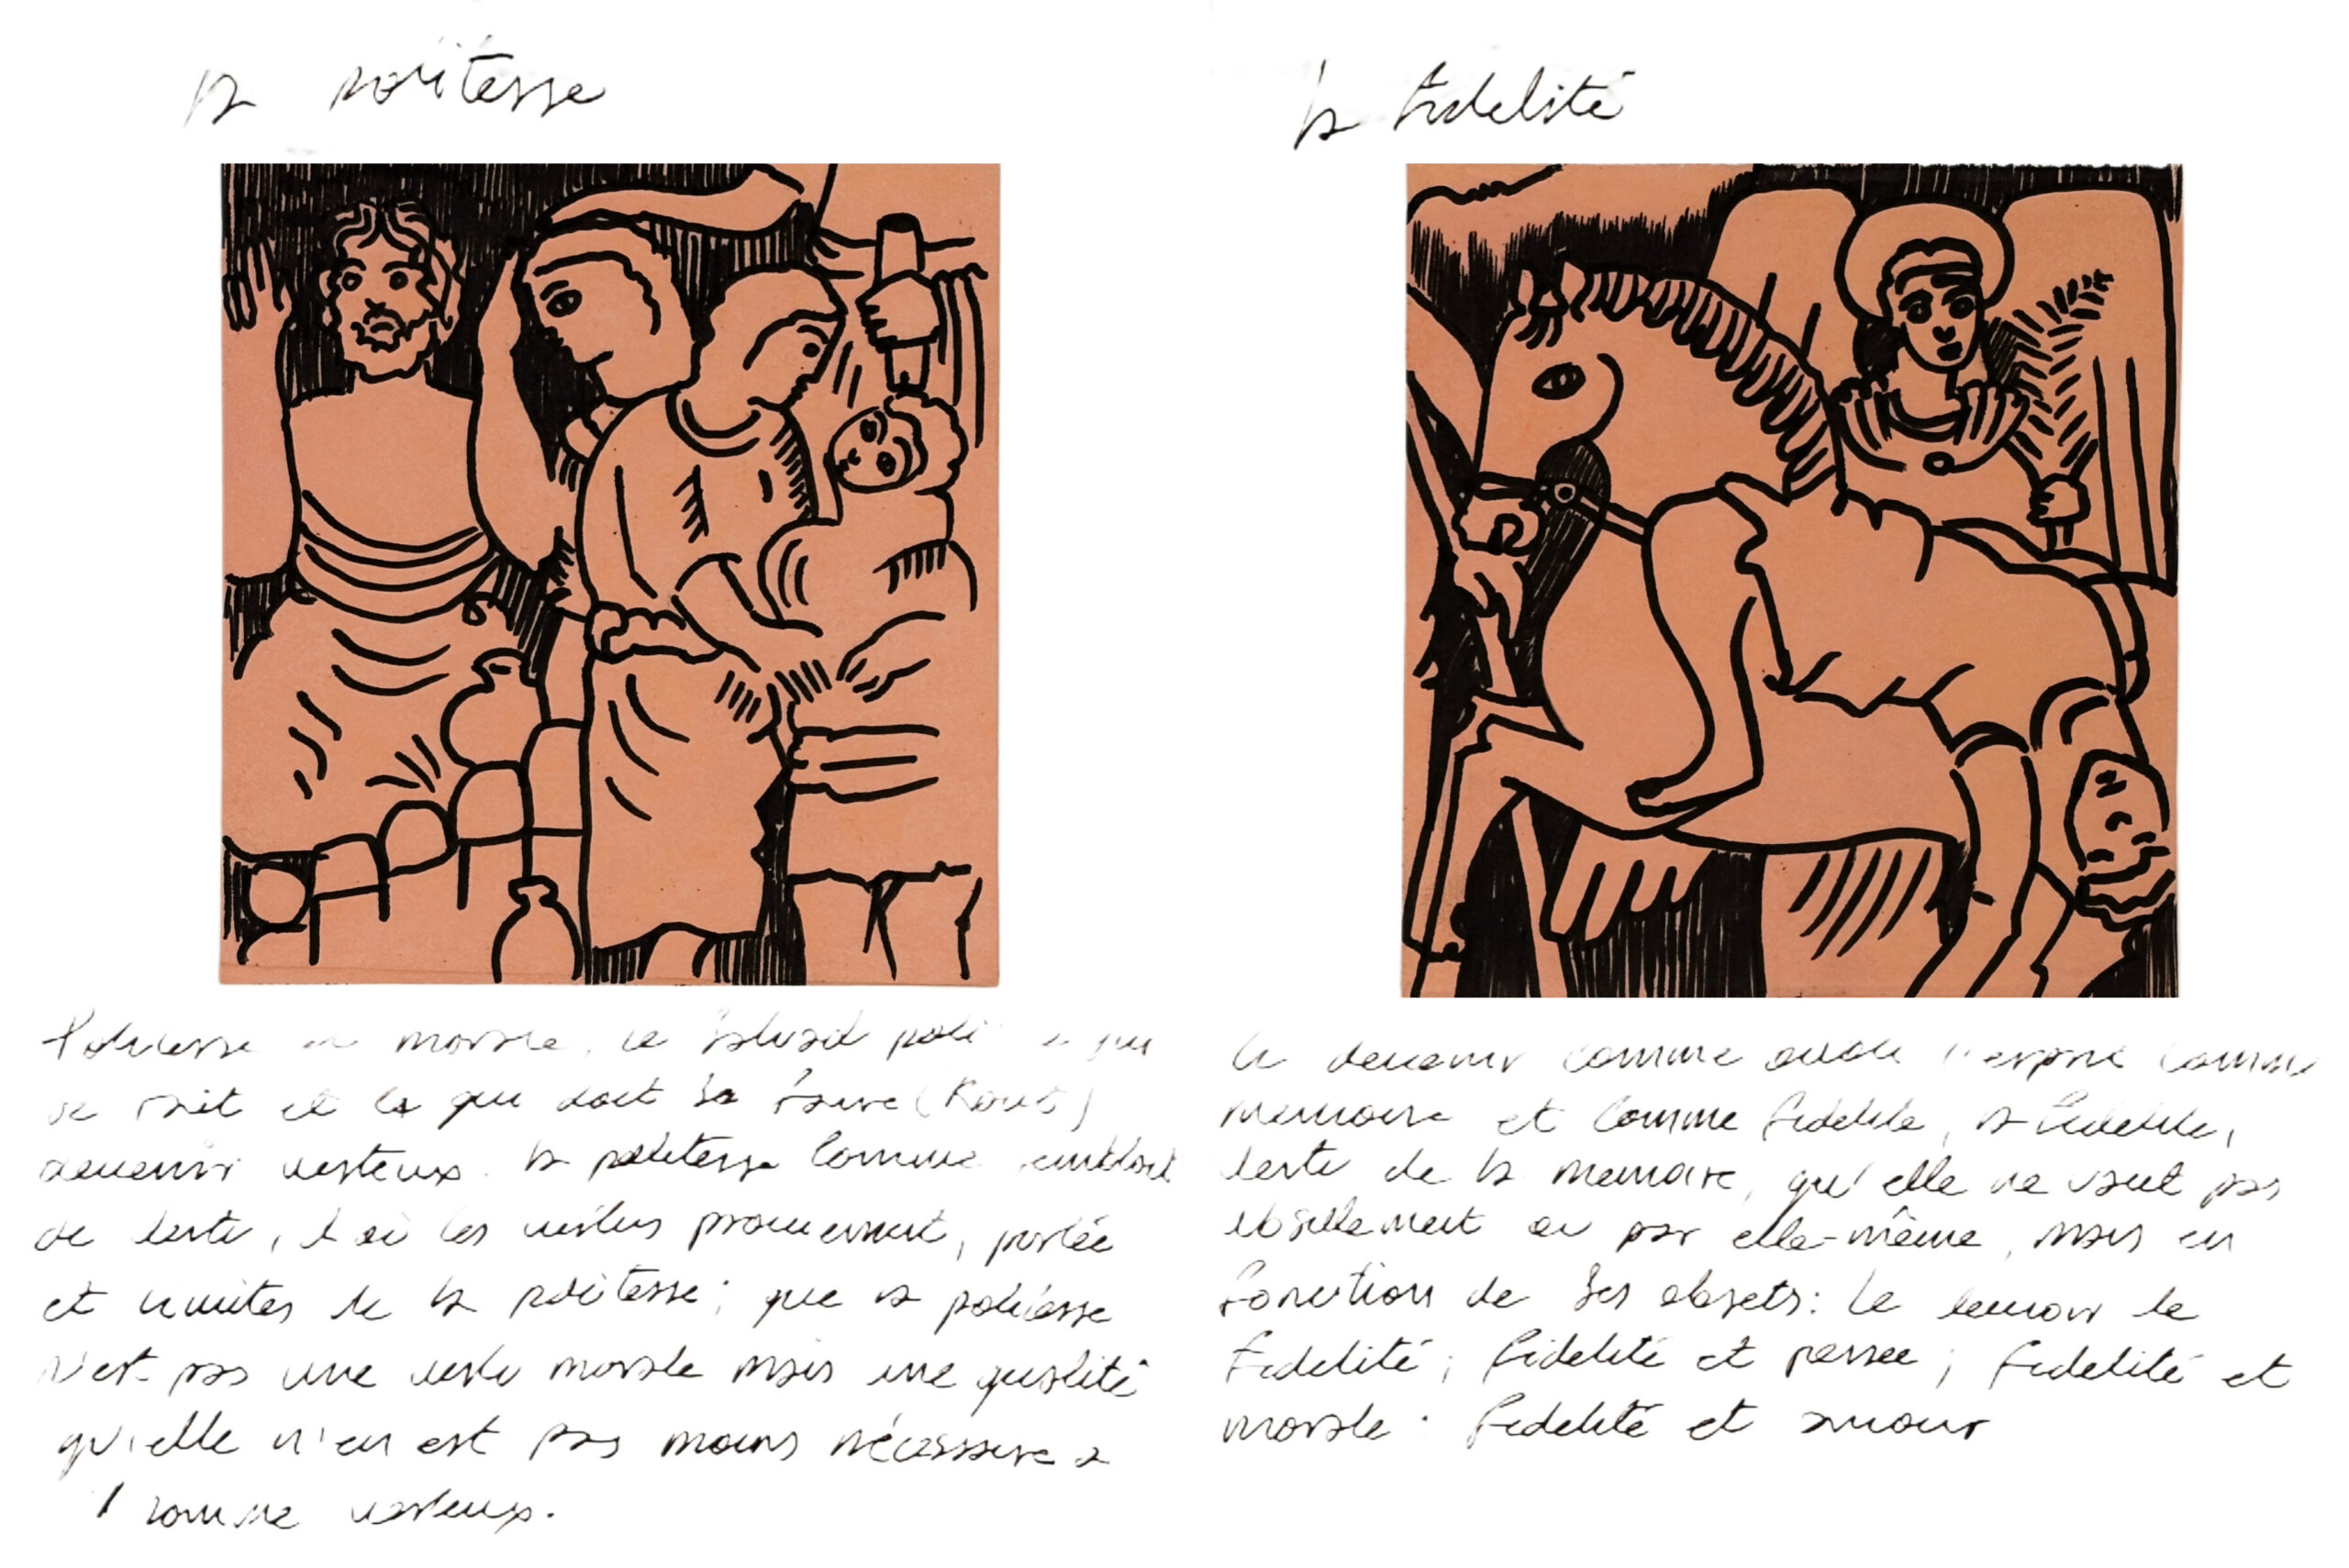 la politesse
Politesse et morale, le salaud poli ce qui
se fait et ce qui doit se faire (Kant)
devenir vertueux. la politesse comme semblant
de vertu, d'où les vertus proviennent, portée
et limites de la politesse; que la politesse
n'est pas une vertu morale mais une qualité
qu'elle n'en est pas moins nécessaire a
l'homme vertueux.
la fidelité
Le devenir comme oubli l'esprit comme
memoire et comme fidelité, la fidelité,
vertu de la memoire, qu'elle ne vaut pas
ou par elle-même, mais en
fonction de ses objets: le devoir de
fidelité; fidelité et pensee; fidelité et
morale. fidelité et amour